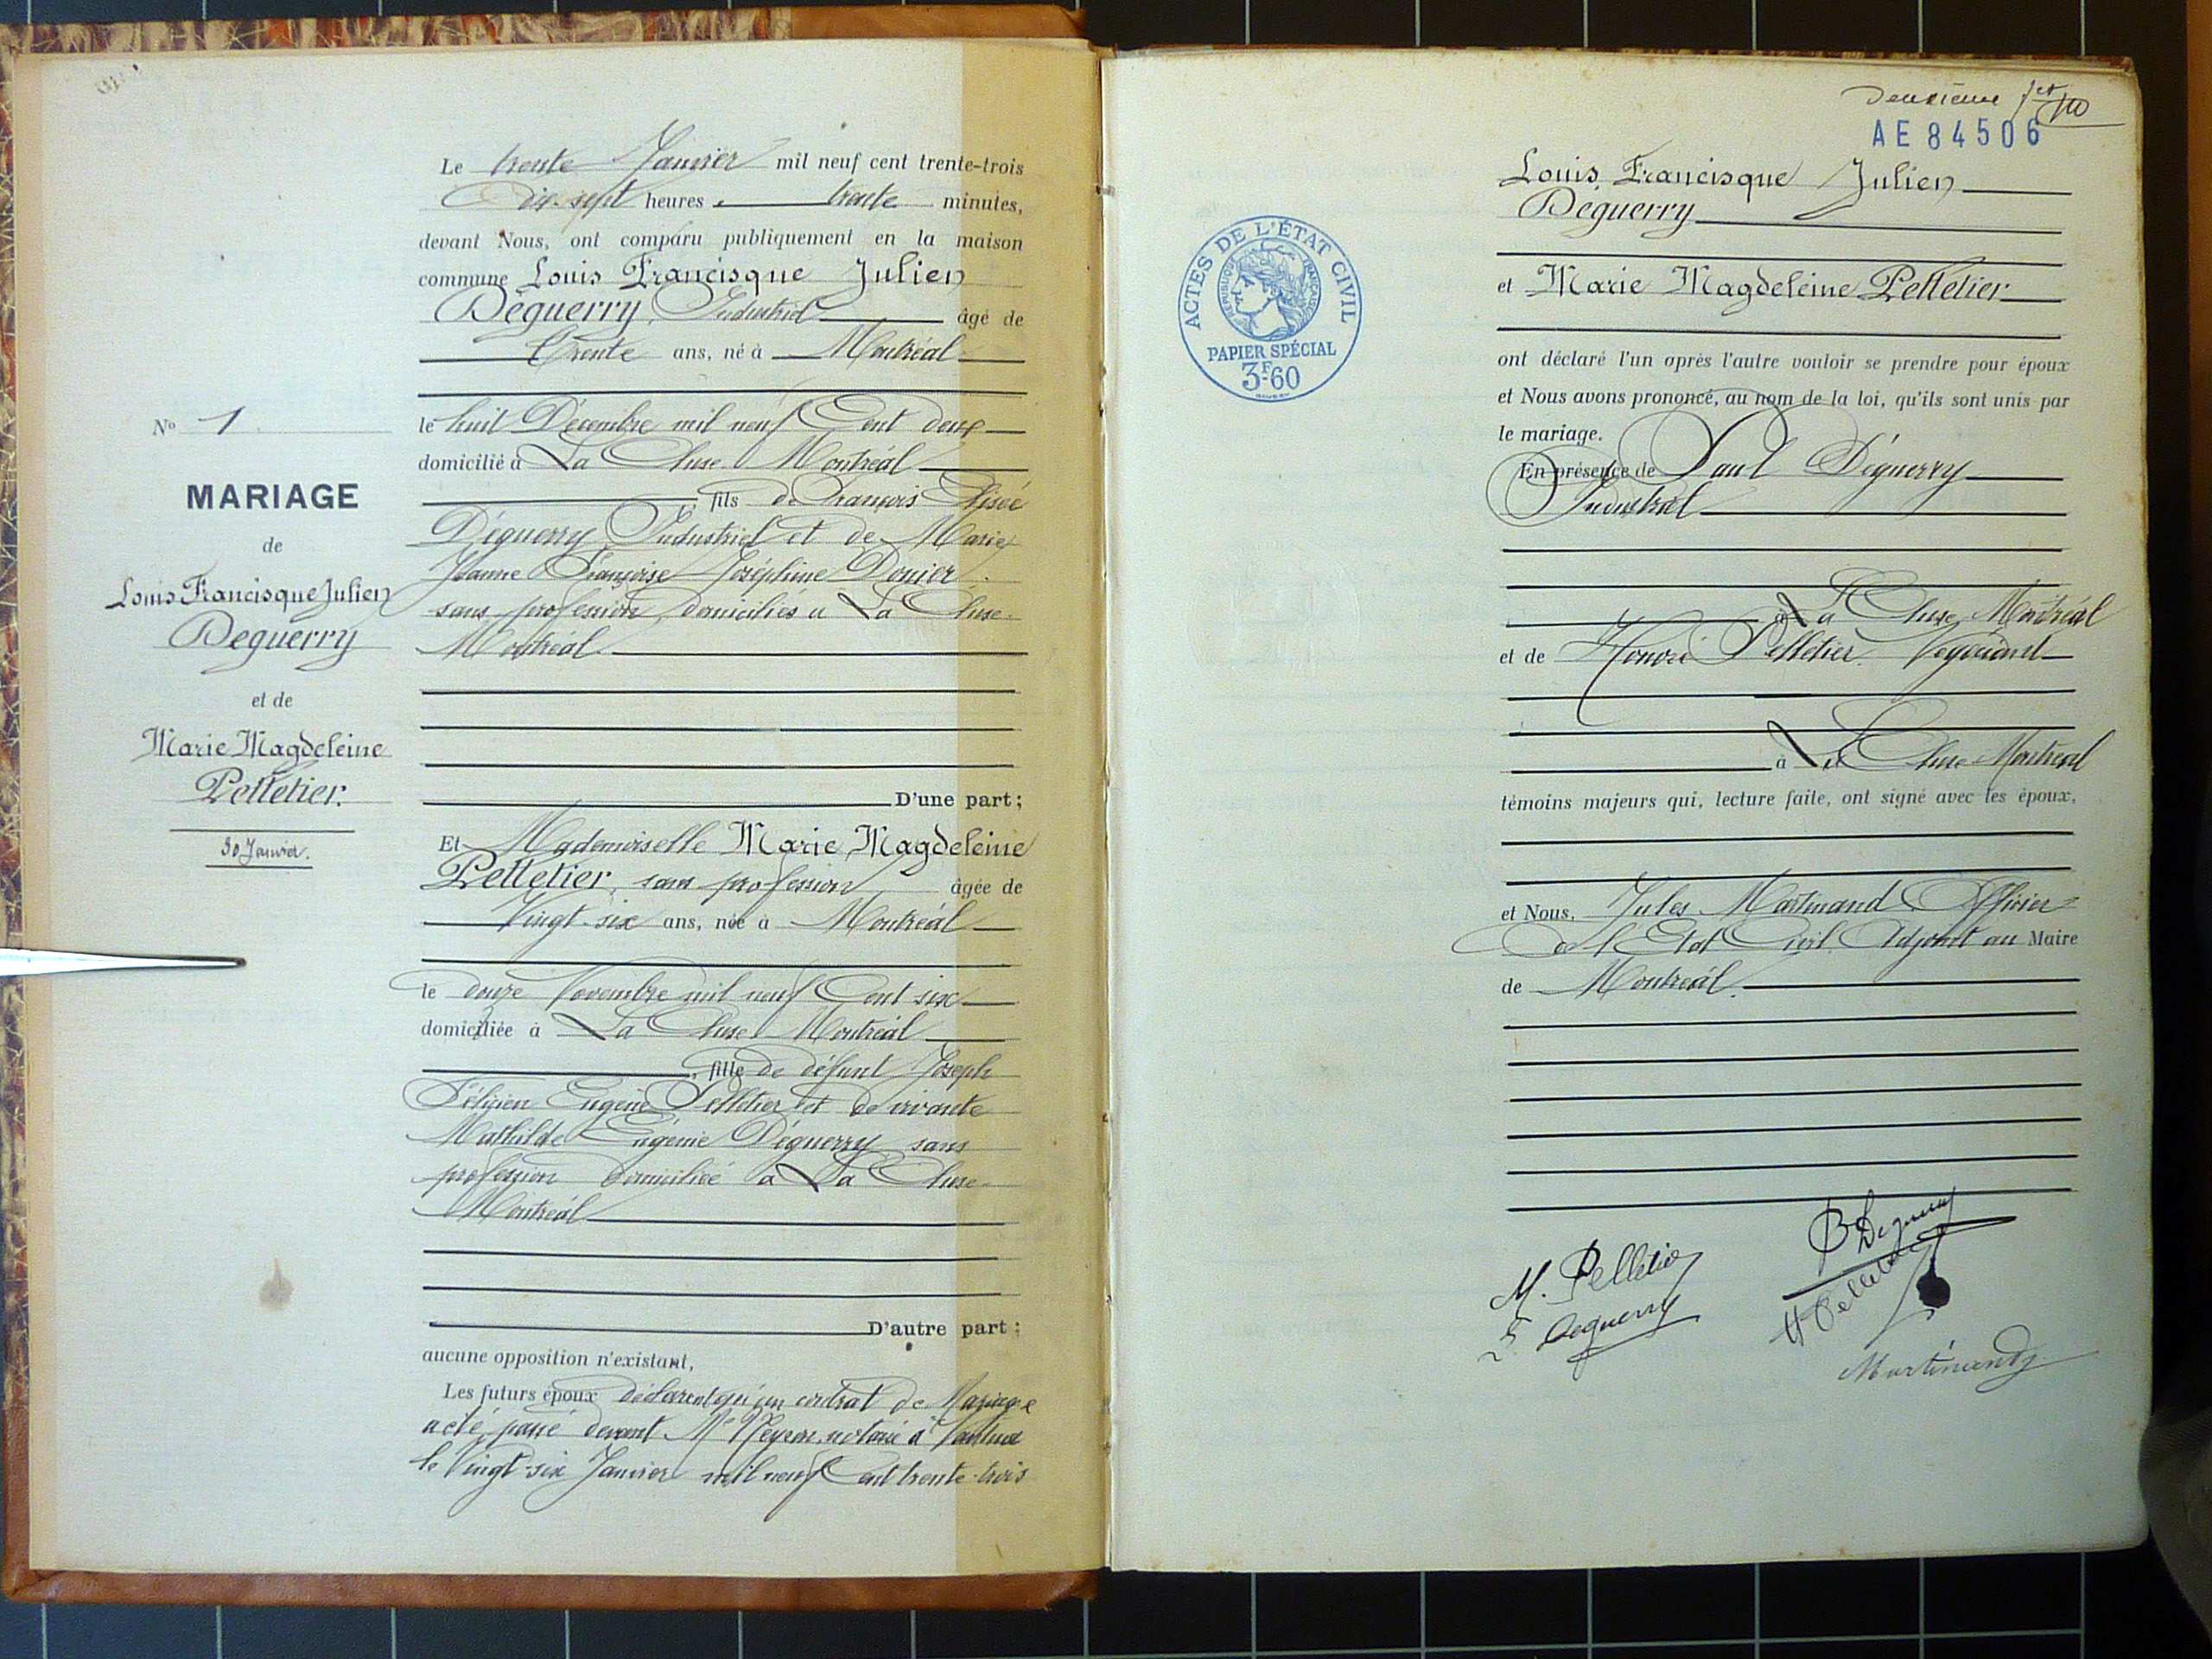 Le trente Janvier mil neuf cent trente-trois
Dix-sept heures trente minutes,
devant Nous, ont comparu publiquement en la maison
commune Louis Francisque Julien
Déguerry, Industriel âgé de
Trente ans, né à Montréal
le huit Décembre mil neuf Cent deux
domicilié à La Cluse Montréal
, fils de François Elisée
Déguerry Industriel et de Marie
Jeanne Françoise Joséphine Donier
sans profession, domiciliés à La Cluse
Montréal
D'une part;
Et Mademoiselle Marie Magdeleine
Pelletier, sans profession âgée de
Vingt-six ans, née à Montréal
le douze Novembre mil neuf Cent six
domiciliée à La Cluse Montréal
, fille de défunt Joseph
Félicien Eugène Pelletier et de vivante
Mathilde Eugénie Déguerry sans
profession domiciliée à La Cluse-
Montréal
D'autre part;
aucune opposition n'existant,
Les futurs époux déclarent qu'un contrat de Mariage
a été passé devant Me notaire à Nantua
le Vingt-six Janvier mil neuf Cent trente-trois
No 1
MARIAGE
de
Louis Francisque Julien
Deguerry
et de
Marie Magdeleine
Pelletier.
30 Janvier.
Deuxième
AE 84506
ACTES DE L'ÉTAT CIVIL
RÉPUBLIQUE FRANÇAISE
PAPIER SPÉCIAL
3F60
Louis, Francisque Julien
Déguerry
et Marie Magdeleine Pelletier
ont déclaré l'un après l'autre vouloir se prendre pour époux
et Nous avons prononcé, au nom de la loi, qu'ils sont unis par
le mariage.
En présence de Paul Déguerry
Industriel
à La Cluse Montréal
et de Honoré Pelletier Négociant
à La Cluse Montréal
témoins majeurs qui, lecture faite, ont signé avec les époux,
et Nous, Jules Martinand Officier
de l'Etat Civil Adjoint au Maire
de Montréal.
M. Pelletier
Deguerry
H Pelletier
Martinand